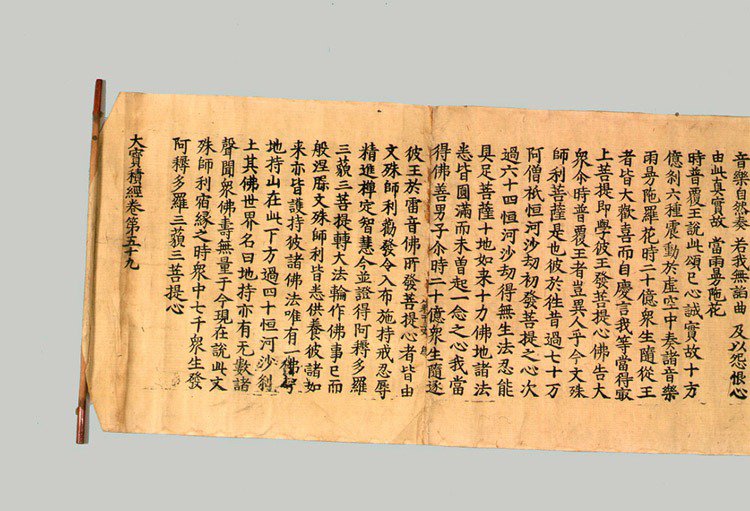 音樂自然奏 若我無諂曲 及以怨恨心
由此真實故 當雨曼陁花
時普覆王說此頌已心誠實故十方
億刹六種震動於虛空中奏諸音樂
雨曼陁羅花時二十億衆生隨從王
者皆大歡喜而自慶言我等當得冣
上菩提即學彼王發菩提心佛告大
衆尒時普覆王者豈異人乎今文殊
師利菩薩是也彼於往昔過七十万
阿僧祇恒河沙劫初發菩提之心次
過六十四恒河沙劫得無生法忍能
具足菩薩十地如來十力佛地諸法
悉皆圓滿而未曾起一念之心我當
得佛善男子尒時二十億衆生隨逐
彼王於雷音佛所發菩提心者皆由
文殊師利勸發令入布施持戒忍辱
精進禪定智慧今並證得阿耨多羅
三藐三菩提轉大法輪作佛事已而
般涅槃文殊師利皆悉供養彼諸如
來亦皆護持彼諸佛法唯有一佛号
地持山在此下方過四十恒河沙刹
土其佛世界名曰地持亦有無數諸
聲聞衆佛壽無量于今現在說此文
殊師利宿緣之時衆中七千衆生發
阿耨多羅三藐三菩提心
大寶積經卷第五十九